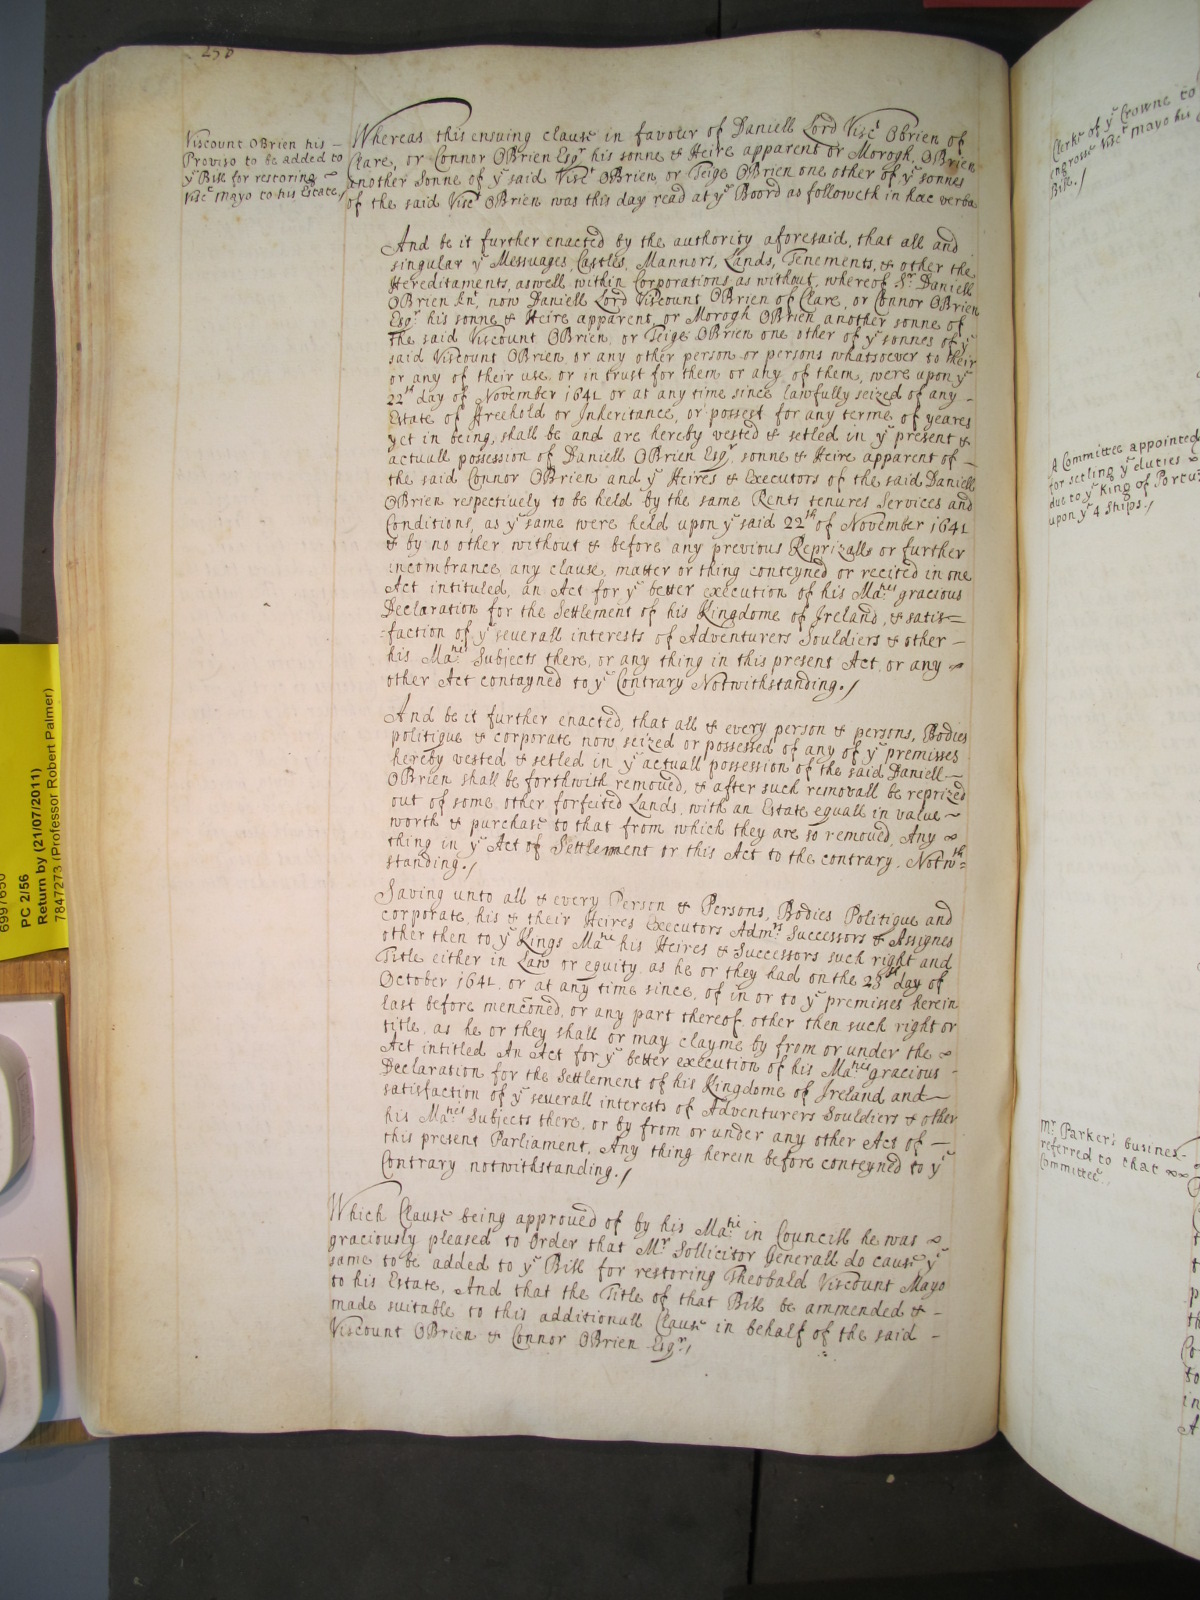 250
Viscount OBrien his –
Proviso to be added to
yᵉ Bill for restoring ~
Viscᵗ Mayo to his Estate /
Whereas this ensuing clause in favour of Daniell Lord Viscᵗ OBrien of
Clare, or Connor OBrien Esqʳ his sonne & Heire apparent or Morogh OBrien
another Sonne of yᵉ said Viscᵗ OBrien or Teige OBrien one other of yᵉ sonnes
of the said Viscᵗ OBrien was this day read at yᵉ Boord as followeth in hæc verba
And be it further enacted by the authority aforesaid, that all and
singular yᵉ Messuages, Castles, Mannors, Lands, Tenements, & other the
Hereditaments, aswell within Corporations, as without, whereof Sʳ Daniell
OBrien Knᵗ, now Daniell Lord Viscount OBrien of Clare, or Connor OBrien
Esqʳ his sonne & Heire apparent, or Morogh OBrien another sonne of
the said Viscount OBrien, or Teige OBrien one other of yᵉ sonnes of yᵉ
said Viscount OBrien or any other person or persons whatsoever to their
or any of their use, or in trust for them or any of them, were upon yᵉ
22ᵗʰ day of November 1641 or at any time since lawfully seized of any –
Estate of Freehold or Inheritance, or possest for any terme of yeares
yet in being, shall be and are hereby vested & setled in yᵉ present &
actuall possession of Daniell OBrien Esqʳ, sonne & Heire apparent of –
the said Connor OBrien and yᵉ Heires & Executors of the said Daniell
OBrien respectively to be held by the same Rents tenures Services and
Conditions, as yᵉ same were held upon yᵉ said 22ᵗʰ of November 1641
& by no other without & before any previous Reprizalls or further
incombrance any clause, matter or thing conteyned or recited in one
Act intituled, an Act for yᵉ better execution of his Maᵗⁱᵉˢ gracious
Declaration for the Settlement of his Kingdome of Ireland, & satis=
=faction of yᵉ severall interests of Adventurers Souldiers & other –
his Maᵗⁱᵉˢ Subjects there, or any thing in this present Act, or any ~
other Act contayned to yᵉ Contrary Notwithstanding. /
And be it further enacted, that all & every person & persons, Bodies
politique & corporate now seized or possessed of any of yᵉ premisses
hereby vested & setled in yᵉ actuall possession of the said Daniell –
OBrien shall be forthwith removed, & after such removall be reprized
out of some other forfeited Lands, with an Estate equall in value ~
worth & purchase to that from which they are so removed, Any ~
thing in yᵉ Act of Settlement or this Act to the contrary, Notwᵗʰ=
standing. /
Saving unto all & every Person & Persons, Bodies Politique and
corporate, his & their Heires Executors Admʳˢ Successors & Assignes
other then to yᵉ Kings Maᵗⁱᵉ his Heires & Successors such right and
Title either in Law or equity, as he or they had on the 23ᵗʰ day of
October 1641, or at any time since, of in or to yᵉ premisses herein
last before menc̃oned, or any part thereof, other then such right or
title, as he or they shall or may clayme by from or under the ~
Act intitled An Act for yᵉ better execution of his Maᵗⁱᵉˢ gracious -
Declaration for the Settlement of his Kingdome of Ireland and –
satisfaction of yᵉ severall interests of Adventurers Souldiers & other
his Maᵗⁱᵉˢ Subjects there, or by from or under any other Act of –
this present Parliament, Any thing herein before conteyned to yᵉ
Contrary notwithstanding. /
Which Clause being approved of by his Maᵗⁱᵉ in Councill he was ~
graciously pleased to Order that Mʳ Sollicitor Generall do cause yᵉ
same to be added to yᵉ Bill for restoring Theobald Viscount Mayo
to his Estate, And that the Title of that Bill be ammended & –
made suitable to this additionall Clause in behalf of the said –
Viscount OBrien & Connor OBrien Esqʳ, /
Clerke of yᵉ Crowne to
engrosse Viscᵗ Mayo his
Bill. /
A Committee appointed
for setling yᵉ duties
due to yᵉ King of
upon yᵉ 4 Ships. /
Mʳ Parker's busines-
referred to that
Committee.
PC 2/56
Return by (21/07/2011)
7847273 (Professor Robert Palmer)